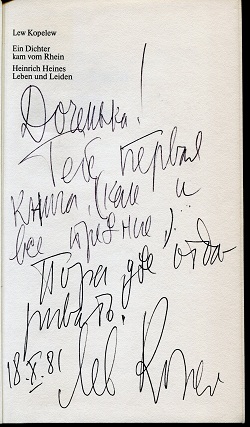 Lew Kopelew
Ein Dichter
kam vom Rhein
Heinrich Heines
Leben und Leiden
Доченька!
Тебе первая
книга, (как и
все прочие)
Пора, де, отда
ривать.
18.X.81 Лев Копел